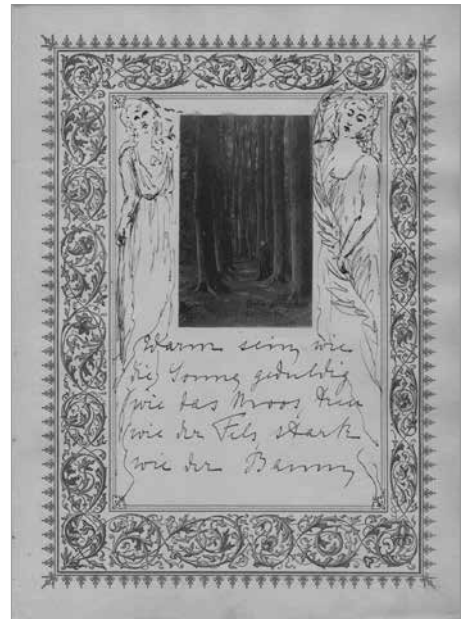 Warm sein, wie
die Sonne geduldig
wie das Moos, treu
wie der Fels stark
wie der Baum